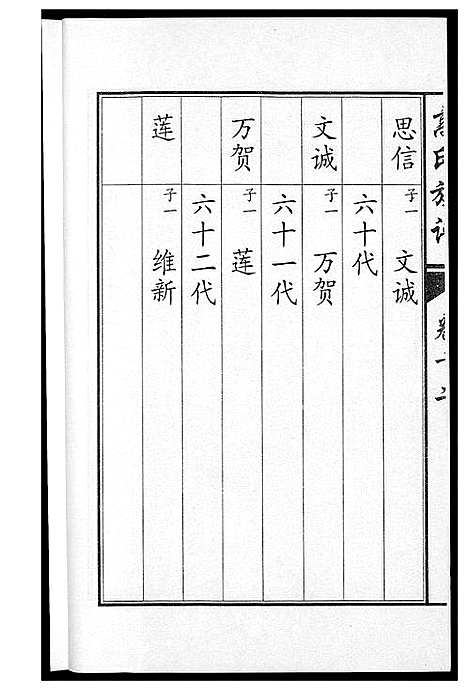 思信 子一 文诚
六十代
文诚 子一 万贺
六十一代
万贺 子一 莲
六十二代
莲 子一 维新